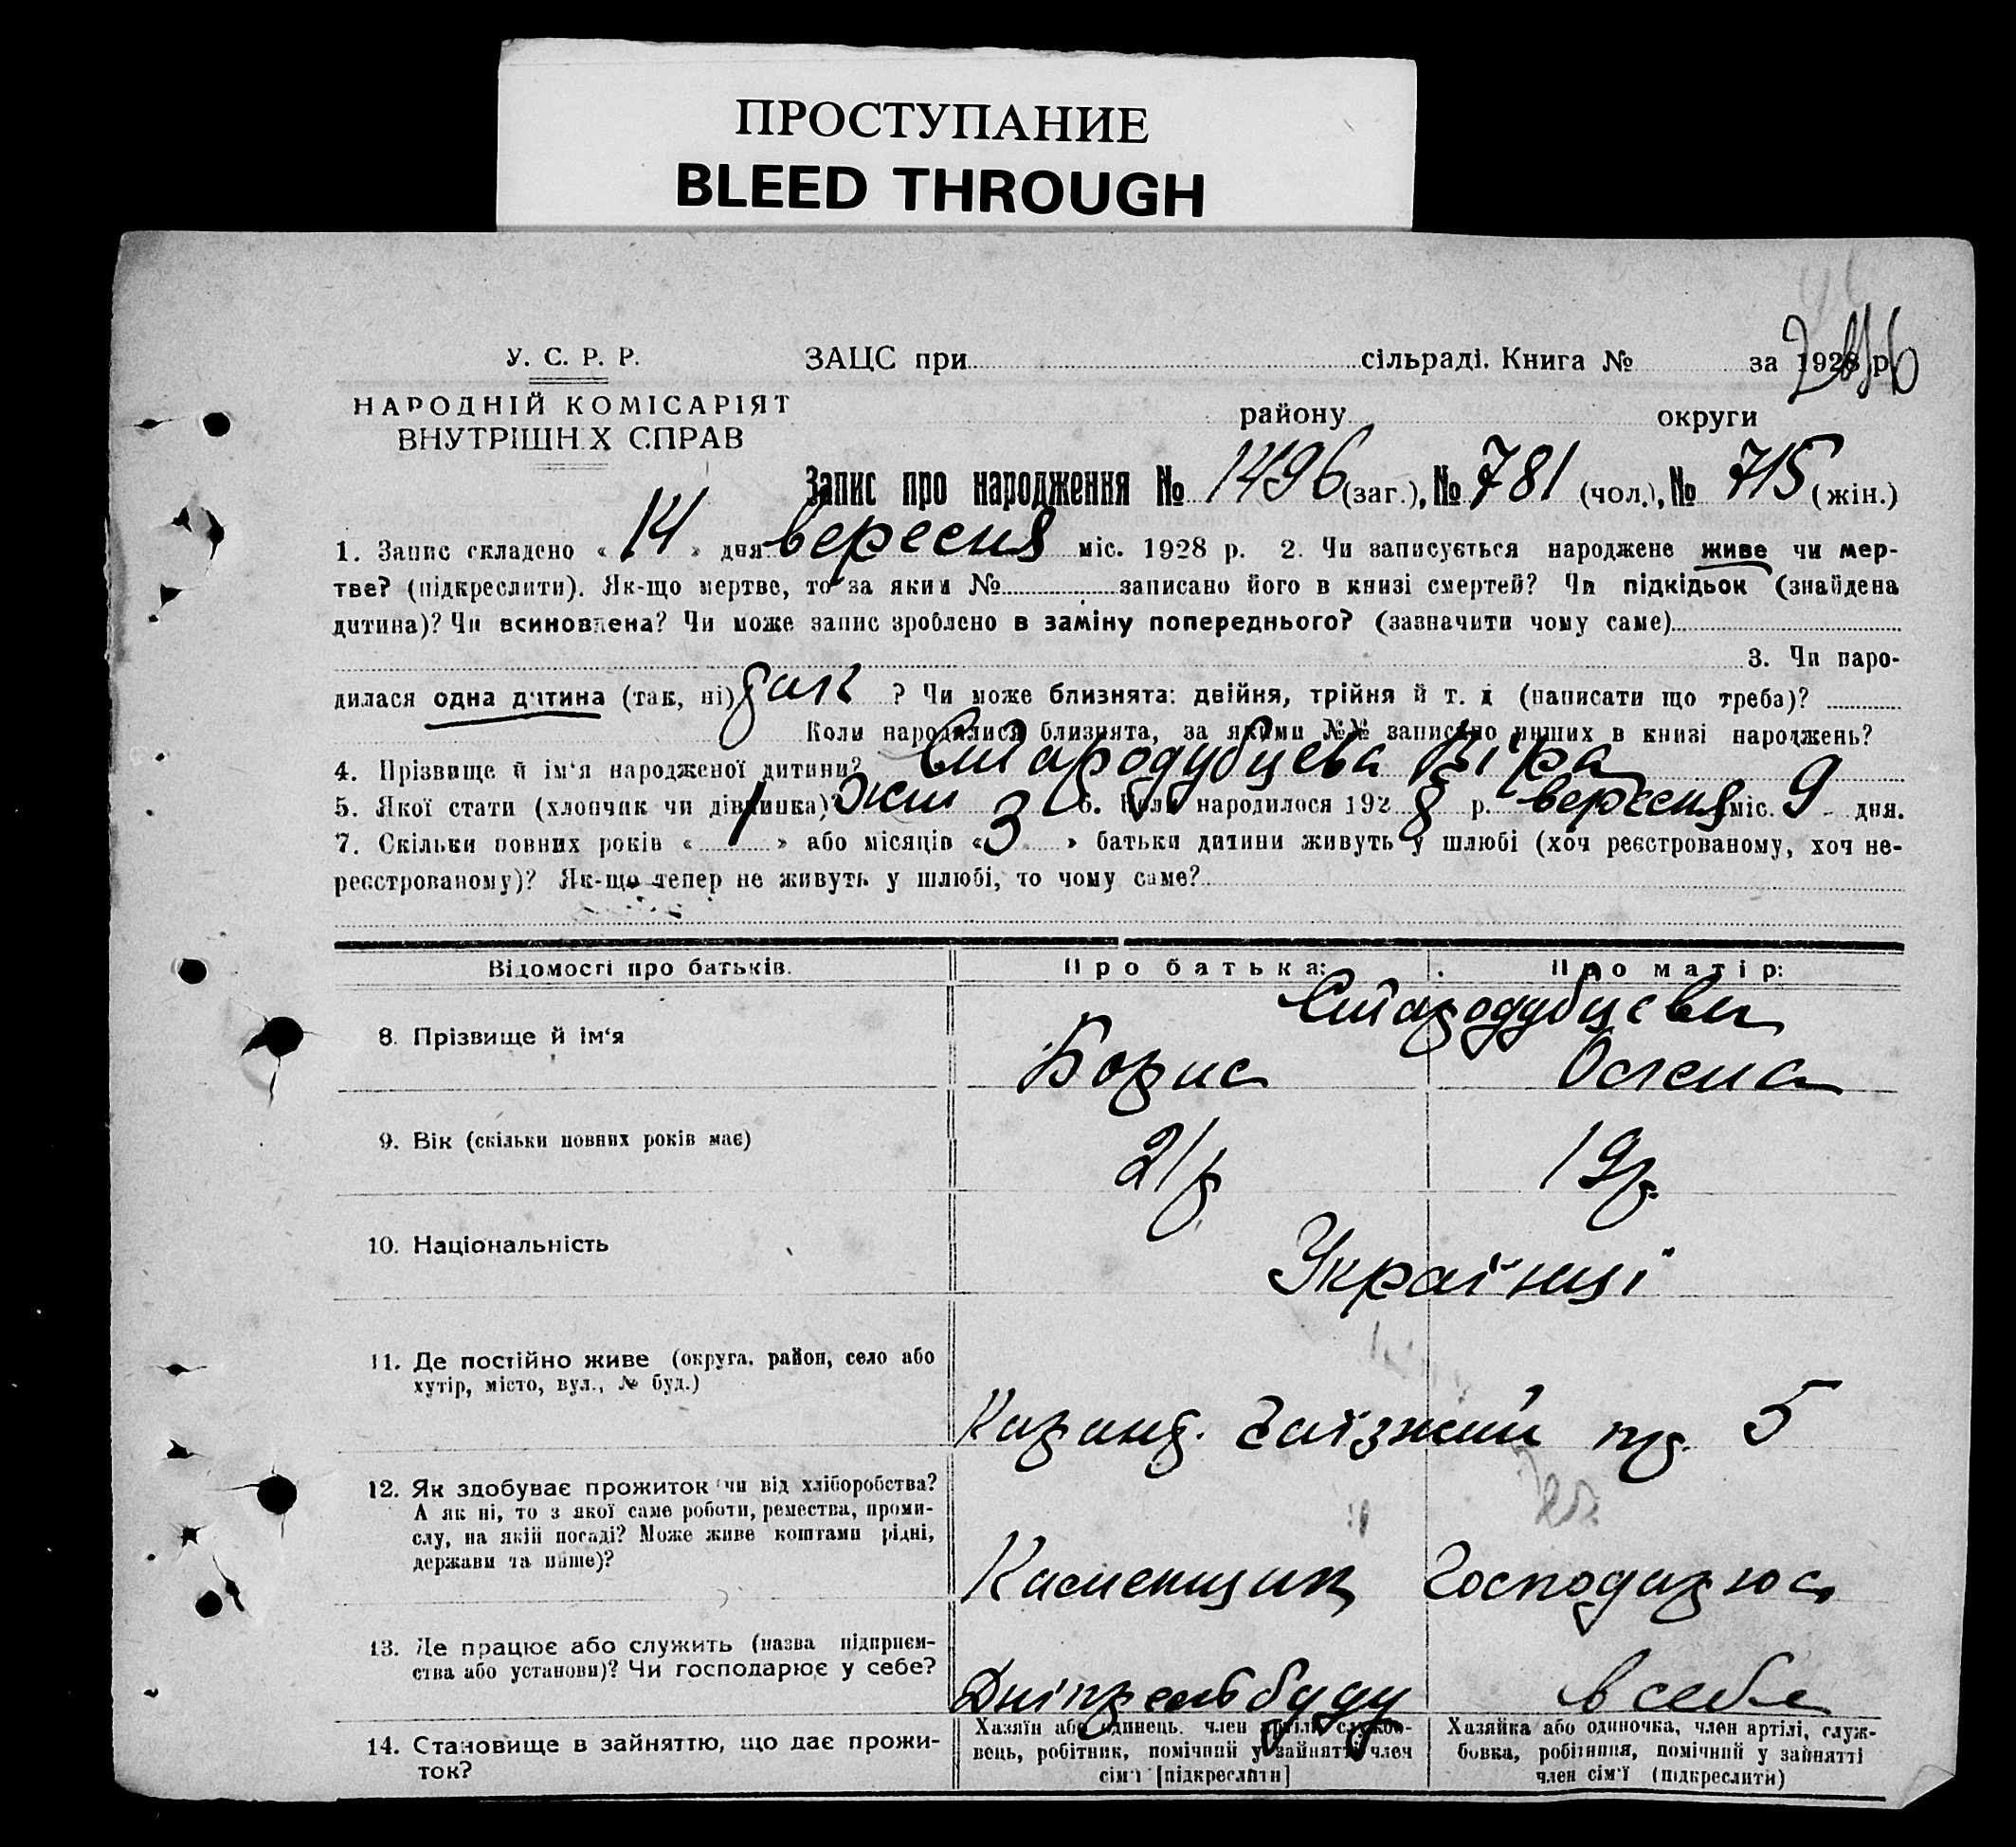 ПРОСТУПАНИЕ
BLEED THROUGH
У. С. Р. Р.
НАРОДНІЙ КОМІСАРІЯТ
ВНУТРІШН.Х СПРАВ
ЗАЦС при сільраді. Книга № за 1928 р
району округи
Запис про народження № 1496 (заг.), № 781 (чол.), № 715 (жін.)
1. Запис складено « 14 » дня вересня міс. 1928 р. 2. Чи записується народжене живе чи мер-
тве? (підкреслити). Як-що мертве, то за яким № записано його в книзі смертей? Чи підкідьок (знайдена
дитина)? Чи всиновлена? Чи може запис зроблено в заміну попереднього? (зазначити чому саме)
3. Чи наро-
дилася одна дитина (так, ні) ? Чи може близнята: двійня, трійня й т. д (написати що треба)?
Коли народилися близнята, за якими №№ записано инших в книзі народжень?
4. Прізвище й ім'я народженої дитини? Стародубцева Віра
5. Якої стати (хлопчик чи дівчинка)? жін 6. Коли народилося 1928 р. вересня міс. 9 дня.
7. Скільки повних років « 1 » або місяців « 3 » батьки дитини живуть у шлюбі (хоч реєстрованому, хоч не-
реєстрованому)? Як-що тепер не живуть у шлюбі, то чому саме?
Відомості про батьків. Про батька: Про матір:
8. Прізвище й ім'я Стародубцеви
Борис Олена
9. Вік (скільки повних років має) 21 р 19 р.
10. Національність Українці
11. Де постійно живе (округа, район, село або
хутір, місто, вул., № буд.) 5
12. Як здобуває прожиток чи від хліборобства?
А як ні, то з якої саме роботи, ремества, проми-
слу, на якій посаді? Може живе коштами рідні,
держави та инше)? Каменщик Господарює
13. Де працює або служить (назва підприєм-
ства або установи)? Чи господарює у себе? Дніпрельбуду в себе
14. Становище в зайняттю, що дає прожи-
ток?
Хазяїн або одинець, член артілі, службо-
вець, робітник, помічний у зайнятті член
сім'ї [підкреслити]
Хазяйка або одиночка, член артілі, служ-
бовка, робітниця, помічний у зайнятті
член сім'ї (підкреслити)